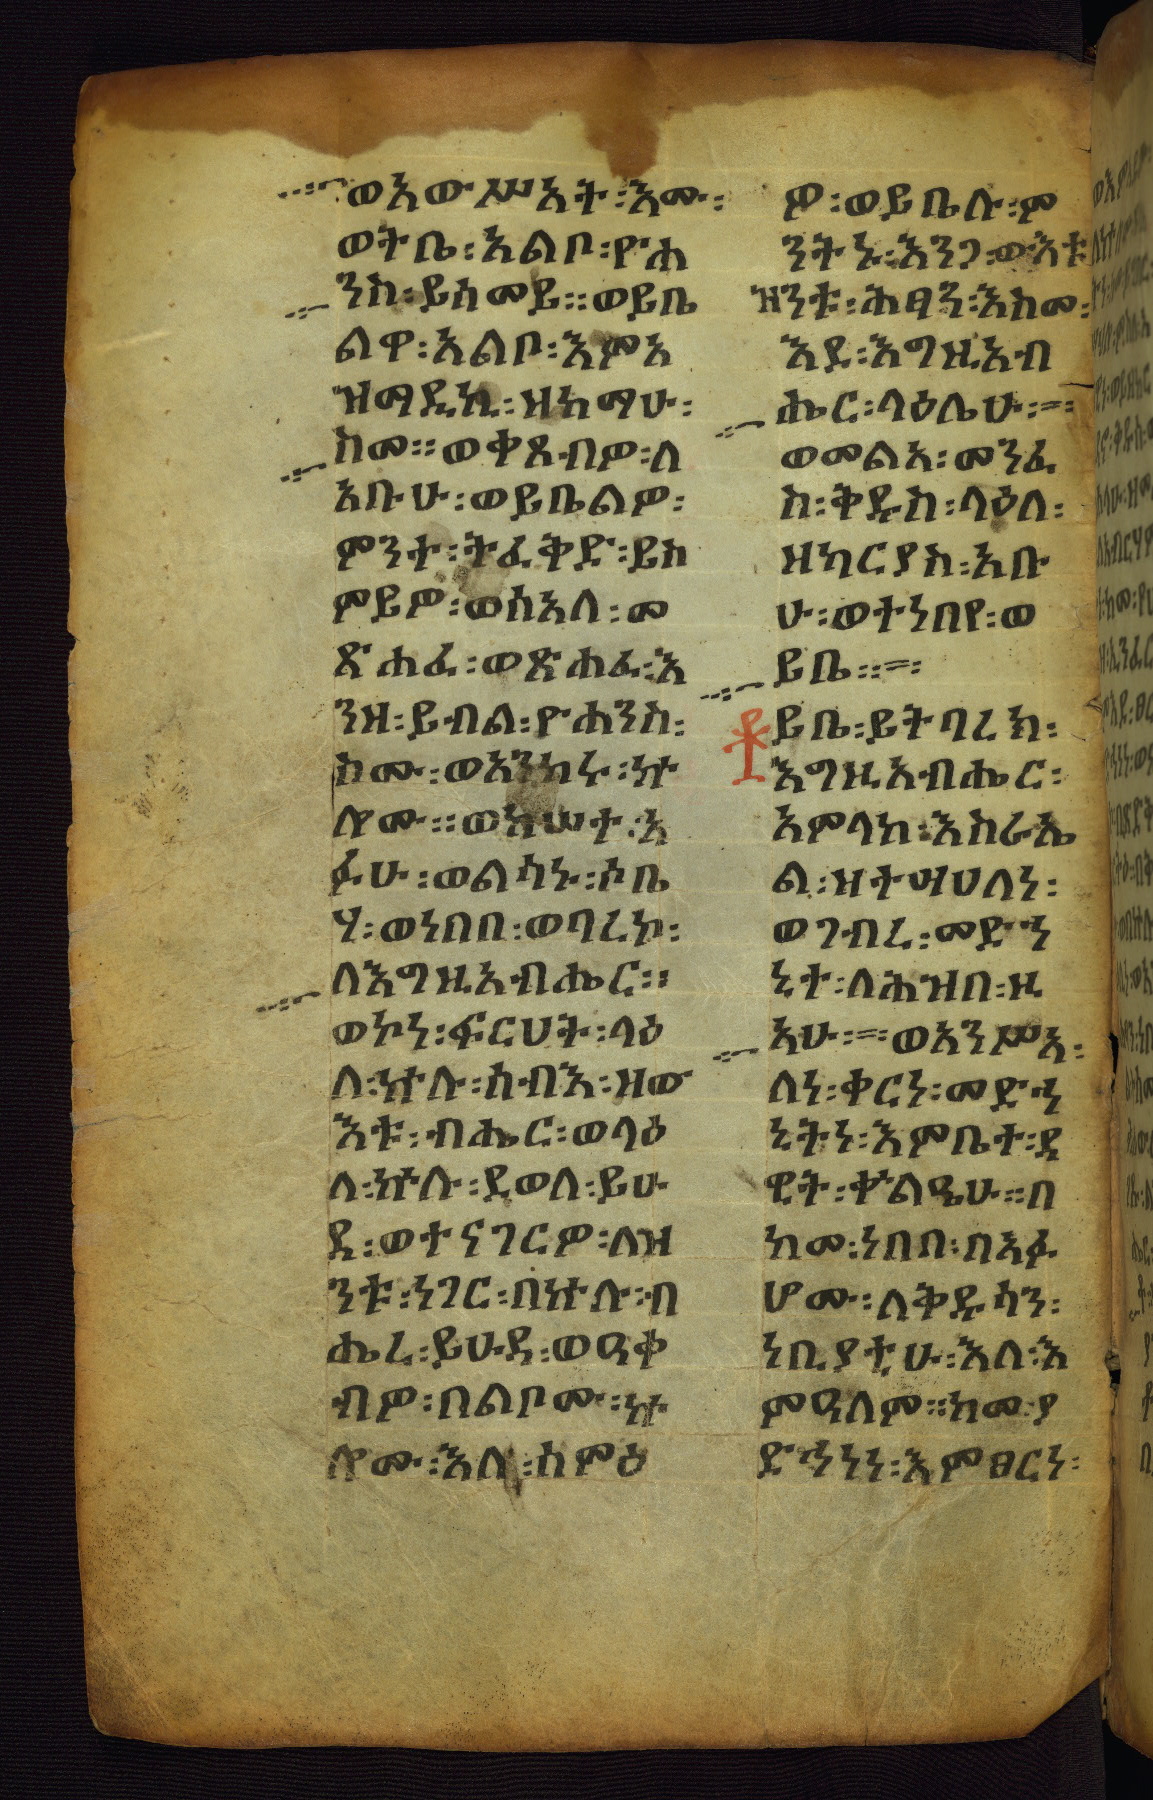 ወአውሥአት፡እሙ፡
ወትቤ፡አልቦ፡ዮሐ
ንስ፡ይሰመይ፡፡ወይቤ
ልዋ፡አልቦ፡እምአ
ዝማዲኪ፡ዘከማሁ፡
ስሙ፡፡ወቀጸብዎ፡ለ
አቡሁ፡ወይቤልዎ፡
ምንተ፡ትፈቅድ፡ይስ
ምይዎ፡ወሰአለ፡መ
ጽሐፈ፡ወጽሐፈ፡እ
ንዘ፡ይብል፡ዮሐንስ፡
ስሙ፡ወአንከሩ፡ኵ
ሎሙ፡፡ወከሠተ፡አ
ፉሁ፡ወልሳኑ፡ሶቤ
ሃ፡ወነበበ፡ወባረኮ፡
ለእግዚአብሔር፡፡
ወኮነ፡ፍርሀት፡ላዕ
ለ፡ኵሉ፡ሰብእ፡ዘው
እቱ፡ብሔር፡ወላዕ
ለ፡ኵሉ፡ደወለ፡ይሁ
ዳ፡ወተናገርዎ፡ለዝ
ንቱ፡ነገር፡በኵሉ፡ብ
ሔረ፡ይሁዳ፡ወዐቀ
ብዎ፡በልቦሙ፡ኵ
ሎሙ፡እለ፡ሰምዕ
ዎ፡ወይቤሉ፡ም
ንትኑ፡እንጋ፡ውእቱ
ዝንቱ፡ሕፃን፡እስመ፡
እደ፡እግዚአብ
ሔር፡ላዕሌሁ፡=፡
ወመልአ፡መንፈ
ስ፡ቅዱስ፡ላዕለ፡
ዘካርያስ፡አቡ
ሁ፡ወተነበየ፡ወ
ይቤ፡፡=፡
ይቤ፡ይትባረክ፡
እግዚአብሔር፡
አምላከ፡እስራኤ
ል፡ዘተሣሀለነ፡
ወገብረ፡መድኀ
ኒተ፡ለሕዝበ፡ዚ
አሁ፡=፡ወአንሥአ፡
ለነ፡ቀርነ፡መድኀ
ኒትነ፡እምቤተ፡ዳ
ዊት፡ቍልዔሁ፡፡በ
ከመ፡ነበበ፡በአፉ
ሆሙ፡ለቅዱሳን፡
ነቢያቲሁ፡እለ፡እ
ምዓለም፡፡ከመ፡ያ
ድኅነነ፡እምፀርነ፡